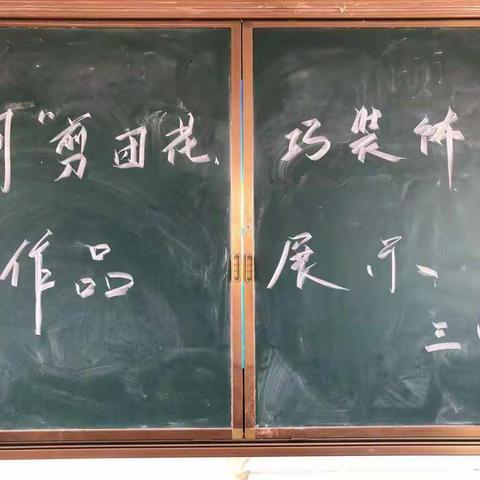 “剪团花、巧装
作品展示、
三